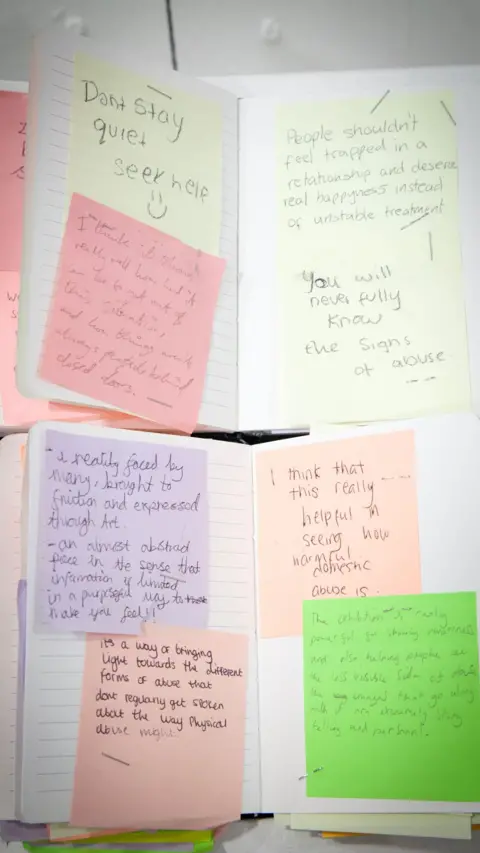 Dont stay
quiet
seek help
I think it shows
really well how hard it
can be to get out of
this situation,
and how things aren't
always perfect behind
closed doors.
People shouldn't
feel trapped in a
relationship and deserve
real happyness instead
of unstable treatment
You will
never fully
know
the signs
of abuse.
- a reality faced by
many, brought to
friction and expressed
through Art.
- an almost abstract
piece in the sense that
information is limited
in a purposful way to
make you feel!!
its a way of bringing
light towards the different
forms of abuse that
dont regularly get spoken
about the way Physical
abuse might.
I think that
this really
helpful in
seeing how
harmful
domestic
abuse is.
The exhibition is really
powerful for showing awareness
and also helping people see
the less visible side of
the
with